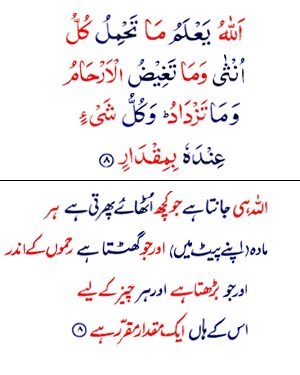 اَللّٰهُ يَعْلَمُ مَا تَحْمِلُ كُلُّ
اُنْثٰى وَمَا تَغِيْضُ الْاَرْحَامُ
وَمَا تَزْدَادُ ؕ وَكُلُّ شَىْءٍ
عِنْدَهٗ بِمِقْدَارٍ ۸
اللہ ہی جانتا ہے جو کچھ اُٹھائے پھرتی ہے ہر
مادہ (اپنے پیٹ میں) اور جو گھٹتا ہے رحموں کے اندر
اور جو بڑھتا ہے اور ہر چیز کے لیے
اس کے ہاں ایک مقدار مقرّر ہے ۸